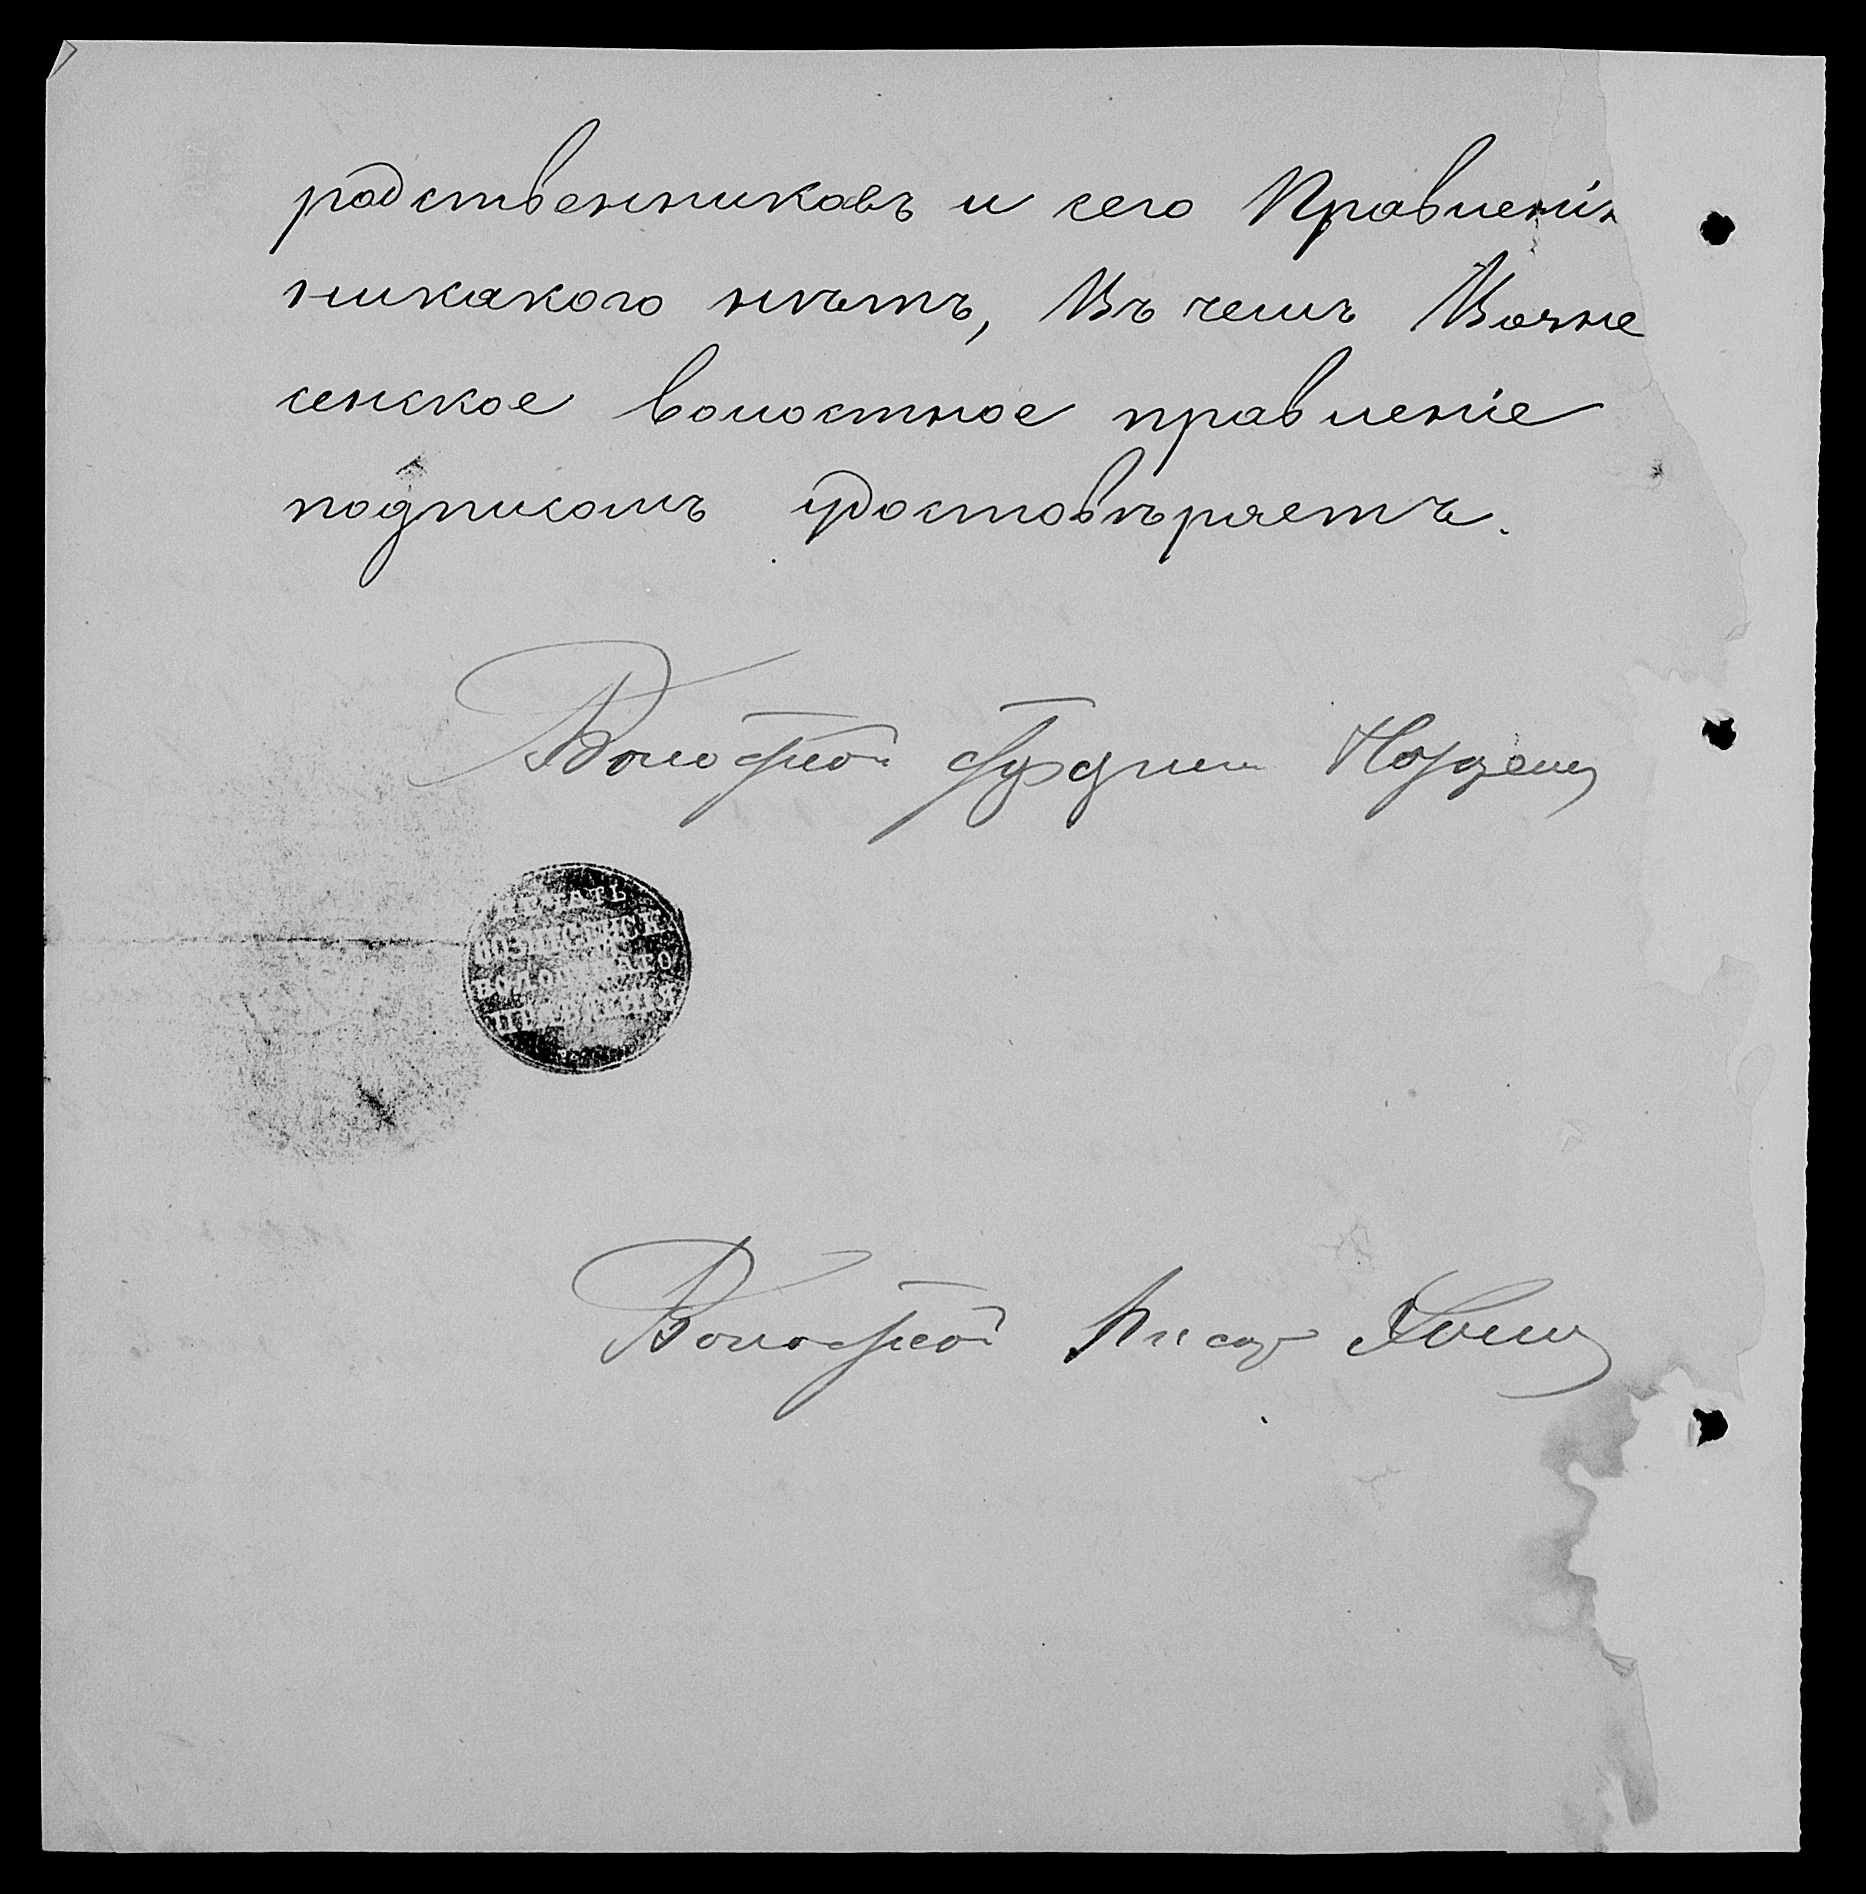 родственниковъ и сего Правленія
никакого нѣтъ, Въ чемъ Вozне
сенское волостное правленіе
подписомъ удостовѣряетъ.
Волостной
ПЕЧАТЬ
ВОЗНЕСЕНСК
ВОЛОСТНАГО
ПРАВЛЕНІЯ
Волостной Писарь